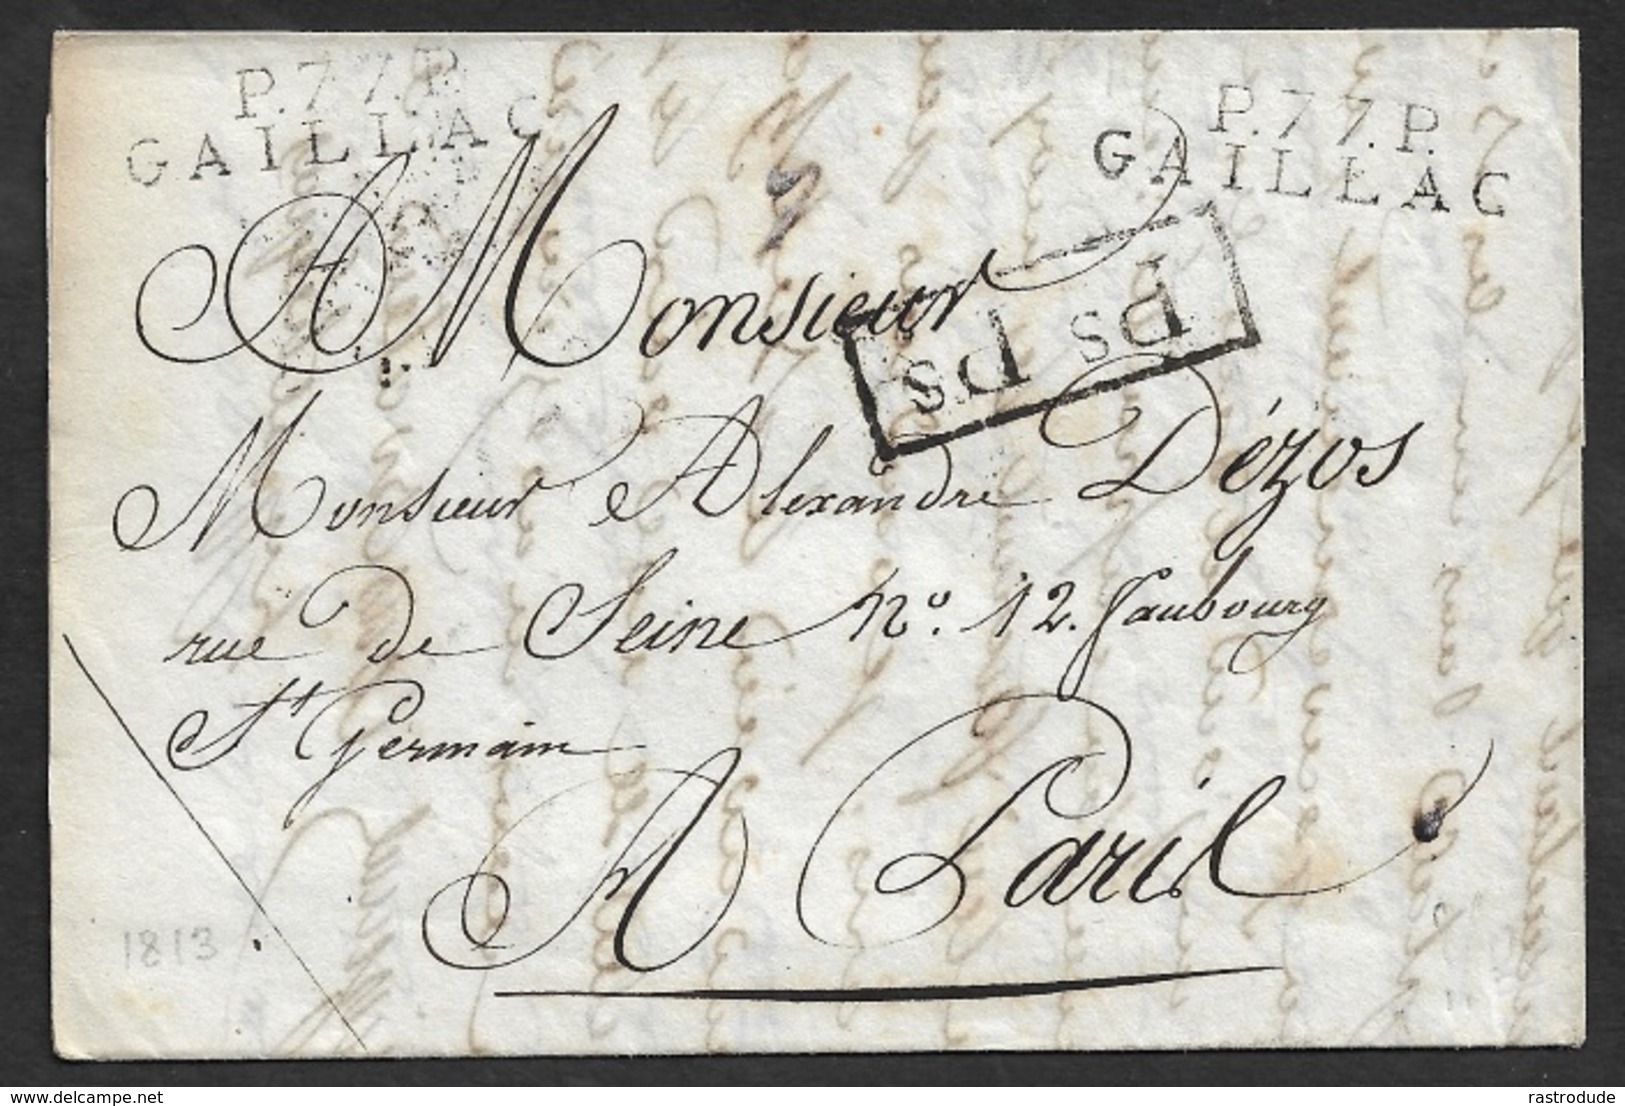 P.77.P.
GAILLAC
P.77.P.
GAILLAC
A Monsieur
Ps Ps
Monsieur Alexandre Dézos
rue de Seine no. 12. faubourg
St Germain
A Paris
1813
www.delcampe.net
rastrodude